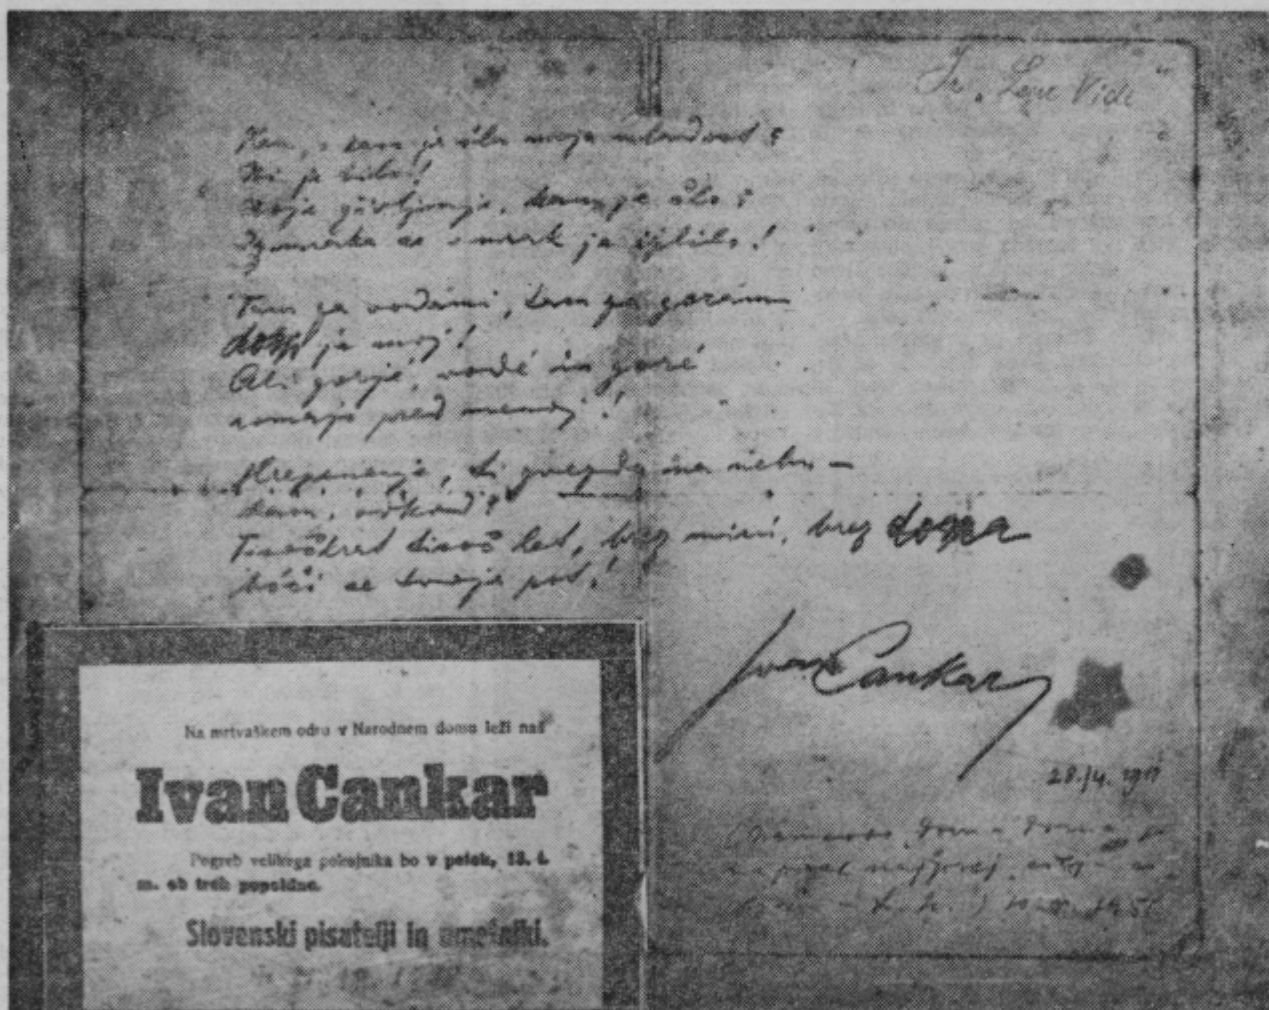 Iz „Lepe Vide“
Kam, o kam je šla moja mladost?
Ni je bilo!
Moje življenje, kam je šlo?
Iz mraka se v mrak je izlilo!
Tam za vodami, tam za gorami
dom je moj!
Ali gorjé, vodé in goré
romajo pred menoj!
Hrepenenje, ti zvezda na nebu —
kam, odkod?
Tisočkrat tisoč let, brez miru, brez doma
boči se tvoja pot!
Ivan Cankar
28./4. 1911
Na mrtvaškem odru v Narodnem domu leži naš
Ivan Cankar
Pogreb velikega pokojnika bo v petek, 13. t.
m. ob treh popoldne.
Slovenski pisatelji in umetniki.